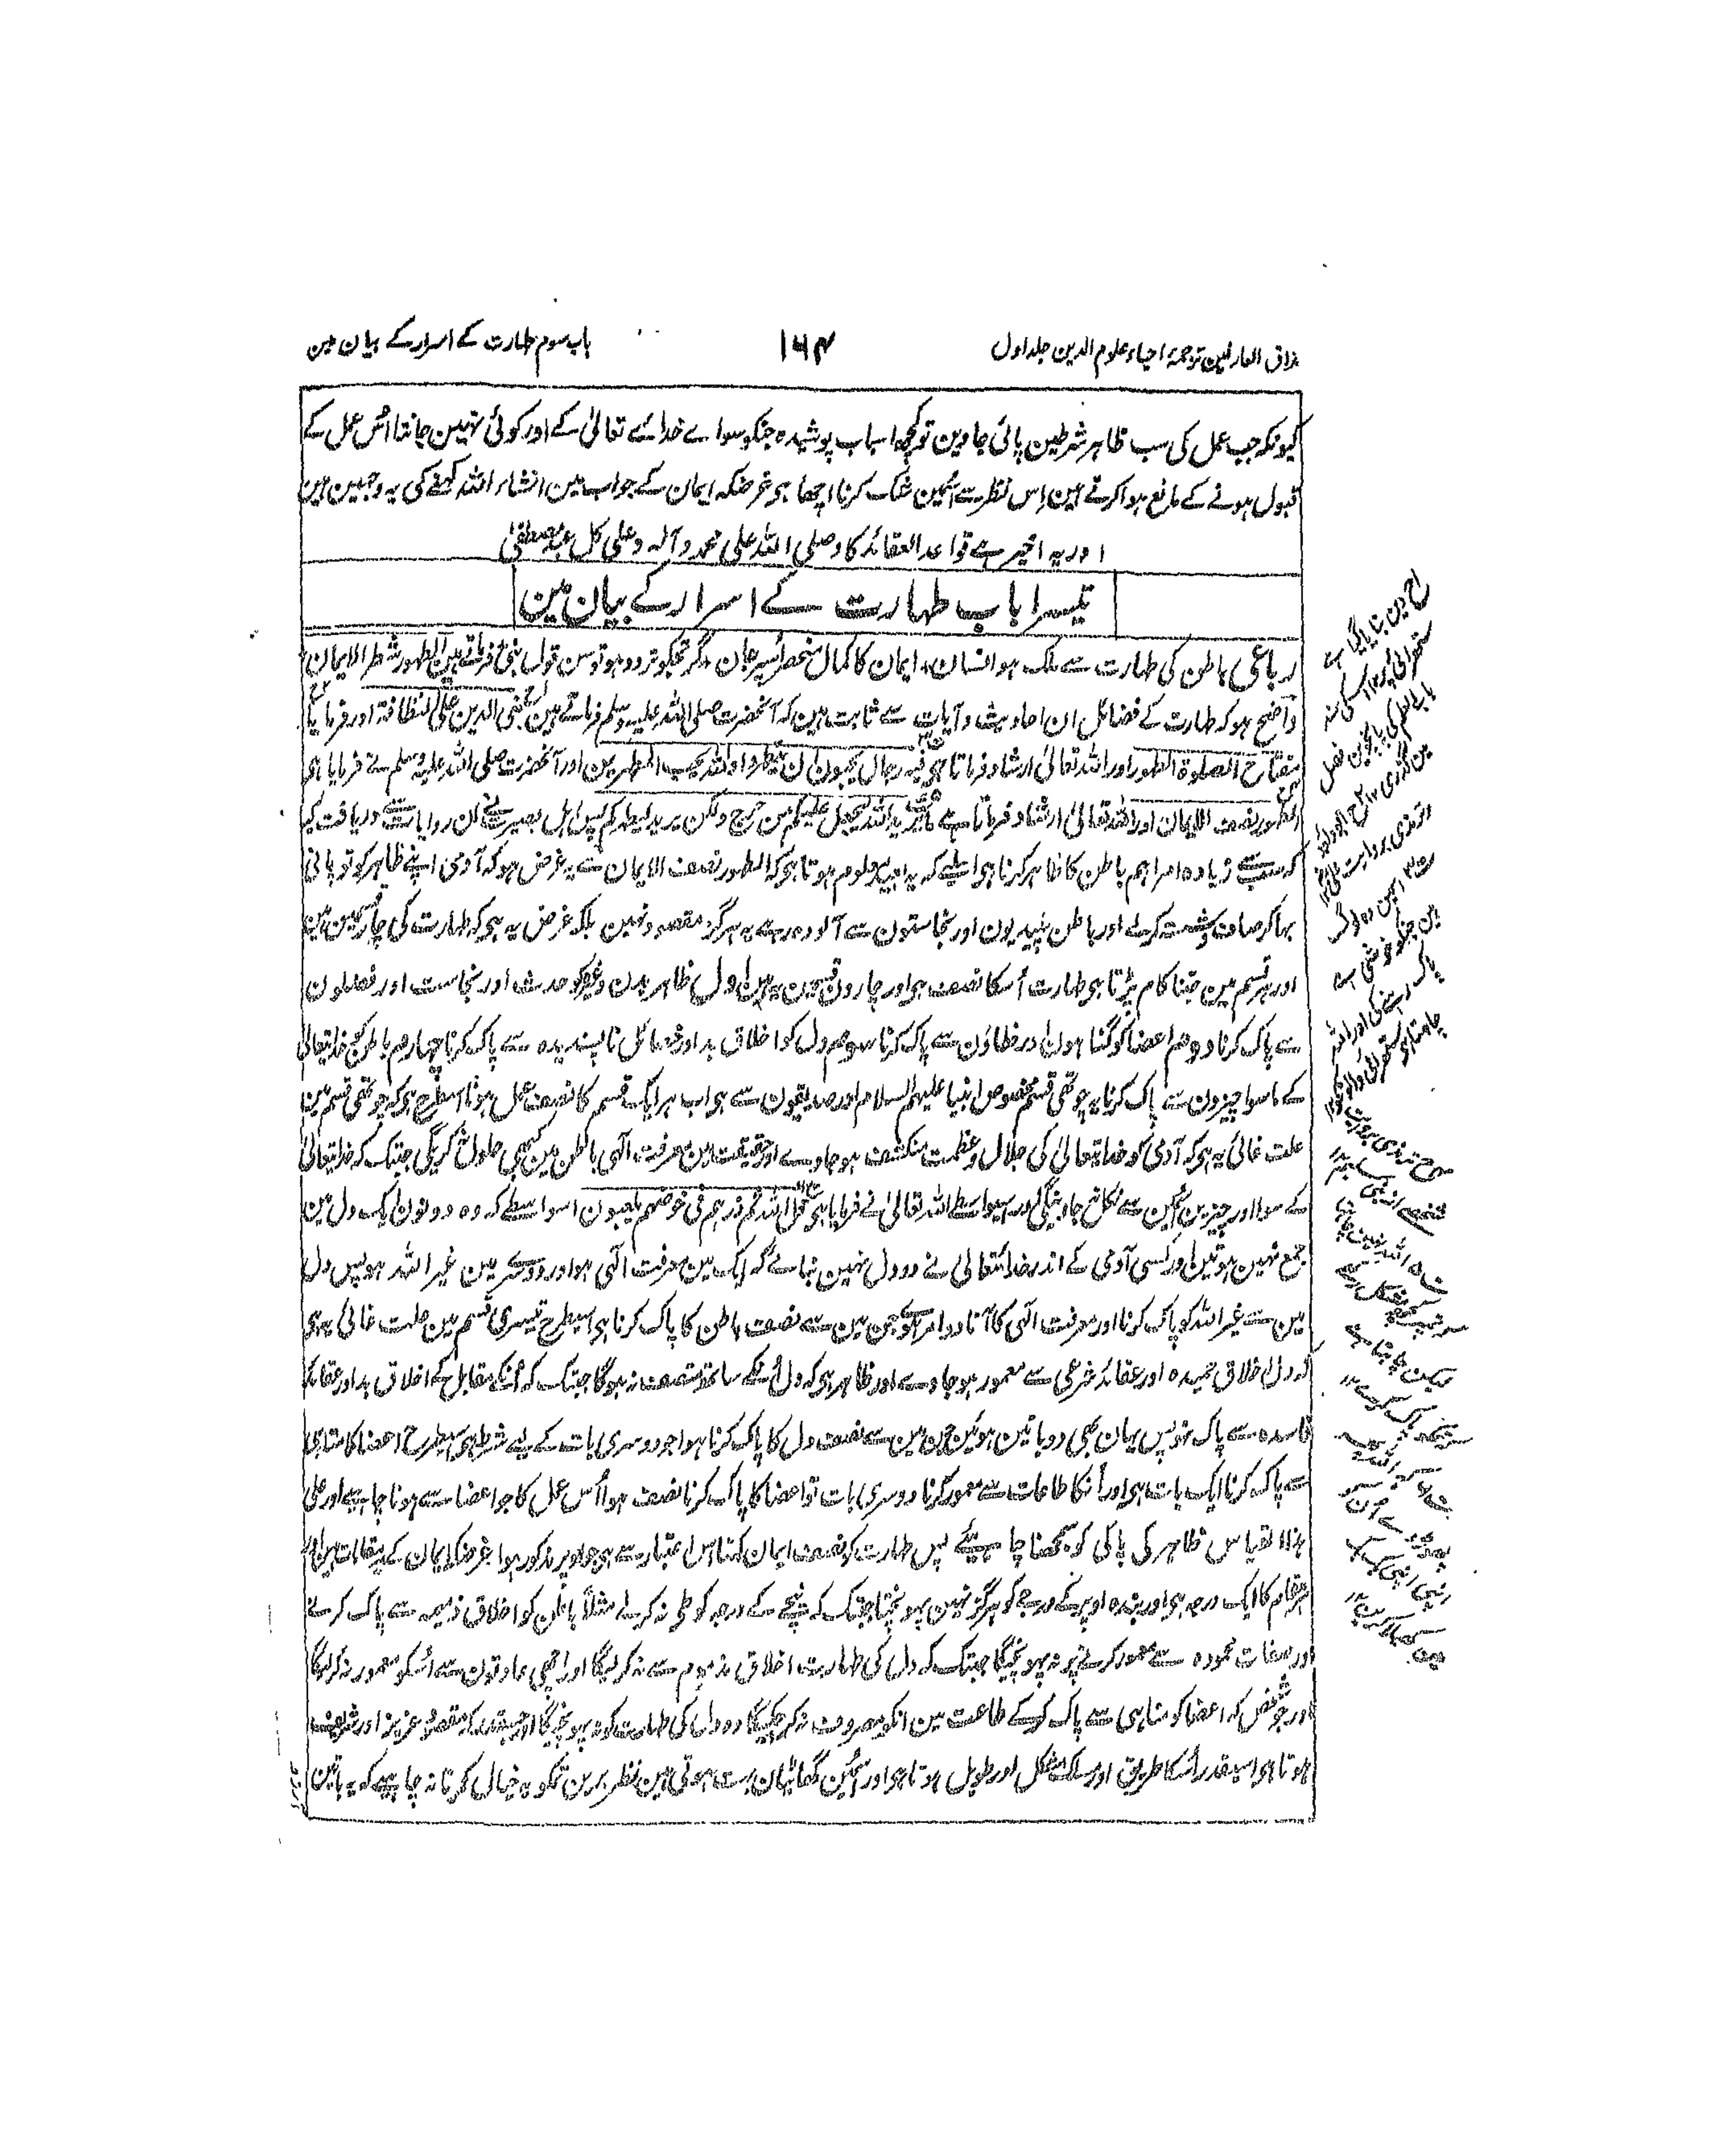 مذاق العارفین ترجمۂ احیاء علوم الدین جلد اول
۱۶۴
باب سوم طہارت کے اسرار کے بیان مین
کیونکہ جب عمل کی سب ظاہر شرطین پائی جاوین تو کچھ اسباب پوشیدہ جنکو سواے خداے تعالیٰ کے اور کوئی نہین جانتا اُس عمل کے
قبول ہونے کے مانع ہوا کرتے ہین اِس نظر سے اُسمین شک کرنا اچھا ہی غرضکہ ایمان کے جواب مین انشاء اللہ کہنے کی یہ وجہین ہین
اور یہ اخیر ہے قواعد العقائد کا وصلی اللہ علی محمد وآلہ وعلی کل عبد مصطفیٰ
تیسرا باب طہارت کے اسرار کے بیان مین
رباعی باطن کی طہارت سے ملک ہو انسان ایمان کا کمال منحصر اُسپر جان گر تجکو تردد ہو تو سن قول نبی فرماتے ہین الطہور شطر الایمان
واضح ہو کہ طہارت کے فضائل ان احادیث و آیات سے ثابت ہین کہ آنحضرت صلی اللہ علیہ وسلم فرماتے ہین بُنی الدین علی النظافۃ اور فرمایا
مفتاح الصلوۃ الطہور اور اللہ تعالیٰ ارشاد فرماتا ہی فیہ رجال یحبون ان یتطہروا واللہ یحب المطہرین اور آنحضرت صلی اللہ علیہ وسلم نے فرمایا ہی
الطہور نصف الایمان اور اللہ تعالیٰ ارشاد فرماتا ہے ما یرید اللہ لیجعل علیکم من حرج ولکن یرید لیطہرکم پس اہل بصیرت نے ان روایات سے دریافت کیا
کہ سب سے زیادہ امر اہم باطن کا ظاہر کرنا ہی اسلیے کہ یہ امر بعید معلوم ہوتا ہی کہ الطہور نصف الایمان سے یہ غرض ہو کہ آدمی اپنے ظاہر کو تو پانی
بہا کر صاف و شستہ کرلے اور باطن پلیدیون اور نجاستون سے آلودہ رہے یہ ہرگز مقصود نہین بلکہ غرض یہ ہی کہ طہارت کی چار قسمین ہین
اور ہر قسم مین جتنا کام پڑتا ہی طہارت اُسکا نصف ہی اور چارون قسمین یہ ہین اول ظاہر بدن وغیرہ کو حدث اور نجاست اور فضلون
سے پاک کرنا دوم اعضا کو گناہون اور خطاؤن سے پاک کرنا سوم دل کو اخلاق بد اور خصائل ناپسندیدہ سے پاک کرنا چہارم باطن کو خدا تعالیٰ
کے ماسوا چیزون سے پاک کرنا یہ چوتھی قسم مخصوص انبیا علیہم السلام اور صدیقون سے ہی اب ہر ایک قسم کا نصف عمل ہونا اسطرح ہی کہ چوتھی قسم مین
علت غائی یہ ہی کہ آدمی کو خدا تعالیٰ کی جلال و عظمت منکشف ہو جاوے اور حقیقت مین معرفت الٰہی باطن مین کبھی حلول نکریگی جبتک کہ خدا تعالیٰ
کے سوا اور چیزین اُسمین سے نکل نجاوینگی اور اسیواسطے اللہ تعالیٰ نے فرمایا ہی قل اللہ ثم ذرہم فی خوضہم یلعبون اسواسطے کہ وہ دونون ایک دل مین
جمع نہین ہوتین اور کسی آدمی کے اندر خدا تعالیٰ نے دو دل نہین بنائے کہ ایک مین معرفت الٰہی ہو اور دوسرے مین غیر اللہ ہو پس دل
مین سے غیر اللہ کو پاک کرنا اور معرفت الٰہی کا آنا دو امر ہوے جن مین سے نصف باطن کا پاک کرنا ہی اسیطرح تیسری قسم مین علت غائی یہ ہی
کہ دل اخلاق حمیدہ اور عقائد شرعی سے معمور ہو جاوے اور ظاہر ہی کہ دل اُنکے ساتھ متصف نہ ہوگا جبتک کہ اُنکے مقابل کے اخلاق بد اور عقائد
فاسدہ سے پاک نہو پس یہان بھی دو باتین ہوئین جن مین سے نصف دل کا پاک کرنا ہوا جو دوسری بات کے لیے شرط ہی اسیطرح اعضا کا مناہی
سے پاک کرنا ایک بات ہی اور اُنکا طاعات سے معمور کرنا دوسری بات تو اعضا کا پاک کرنا نصف ہوا اُس عمل کا جو اعضا سے ہونا چاہیے اور علی
ہذا القیاس ظاہر کی پاکی کو سمجھنا چاہیے پس طہارت کو نصف ایمان کہنا اس اعتبار سے ہی جو اوپر مذکور ہوا غرضکہ ایمان کے یہ مقامات ہین اور
ہر مقام کا ایک درجہ ہی اور بندہ اوپر کے درجے کو ہرگز نہین پہونچتا جبتک کہ نیچے کے درجہ کو طی نہ کرلے مثلاً باطن کو اخلاق ذمیمہ سے پاک کرنے
اور صفات محمودہ سے معمور کرنے پر نہ پہونچیگا جبتک کہ دل کی طہارت اخلاق مذموم سے نہ کرلیگا اور اچھی عادتون سے اُسکو معمور نہ کرلیگا
اور جو شخص کہ اعضا کو مناہی سے پاک کرکے طاعت مین انکو مصروف نہ کرچکیگا وہ دل کی طہارت کو نہ پہونچیگا اور جسقدر کہ مقصود عزیز اور شریف
ہوتا ہی اسیقدر اُسکا طریق اور مسلک مشکل اور طویل ہوتا ہی اور اُسمین گھاٹیان بہت ہوتی ہین نظر برین تمکو یہ خیال کرنا نہ چاہیے کہ یہ باتین
دین بنایا گیا ہے
ستھرائی پر
باب العلم کی پانچوین فصل
مین گذری
اسمین وہ لوگ
ہین جنکو خوشی ہے
پاک رہنے کی اور اللہ
چاہتا ہی ستھرائی والونکو
اللہ نہین چاہتا
کہ تمپر کچھ مشکل رکھے
لیکن چاہتا ہے
کہ تمکو پاک کرے